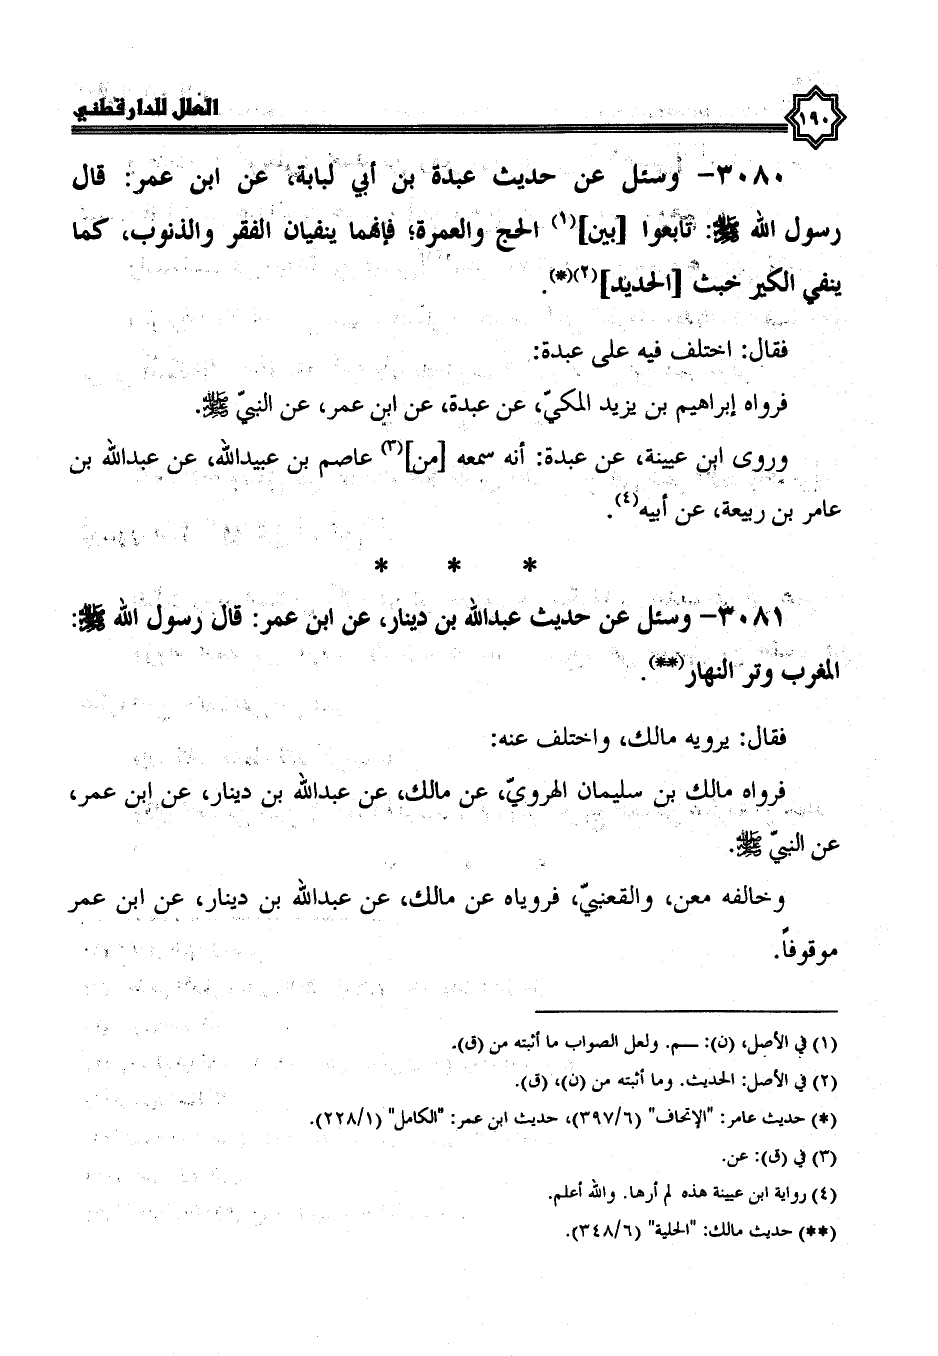 العلل للدارقطني
١٩٠
٣٠٨٠- وسئل عن حديث عبدة بن أبي لبابة، عن ابن عمر: قال
رسول الله ﷺ: تابعوا [بين](١) الحج والعمرة؛ فإنهما ينفيان الفقر والذنوب، كما
ينفي الكير خبث [الحديد](٢)(*).
فقال: اختلف فيه على عبدة:
فرواه إبراهيم بن يزيد المكيّ، عن عبدة، عن ابن عمر، عن النبيّ ﷺ.
وروى ابن عيينة، عن عبدة: أنه سمعه [من](٣) عاصم بن عبيدالله، عن عبدالله بن
عامر بن ربيعة، عن أبيه(٤).
* * *
٣٠٨١- وسئل عن حديث عبدالله بن دينار، عن ابن عمر: قال رسول الله ﷺ:
المغرب وتر النهار(**).
فقال: يرويه مالك، واختلف عنه:
فرواه مالك بن سليمان الهرويّ، عن مالك، عن عبدالله بن دينار، عن ابن عمر،
عن النبيّ ﷺ.
وخالفه معن، والقعنبيّ، فروياه عن مالك، عن عبدالله بن دينار، عن ابن عمر
موقوفاً.
(١) في الأصل، (ن): ــم. ولعل الصواب ما أثبته من (ق).
(٢) في الأصل: الحديث. وما أثبته من (ن)، (ق).
(*) حديث عامر: "الإتحاف" (٣٩٧/٦)، حديث ابن عمر: "الكامل" (٢٢٨/١).
(٣) في (ق): عن.
(٤) رواية ابن عيينة هذه لم أرها. والله أعلم.
(**) حديث مالك: "الحلية" (٣٤٨/٦).